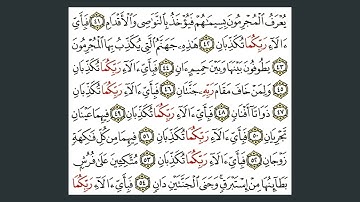 يُعْرَفُ ٱلْمُجْرِمُونَ بِسِيمَٰهُمْ فَيُؤْخَذُ بِٱلنَّوَٰصِى وَٱلْأَقْدَامِ ٤١ فَبِأَىِّ
ءَالَآءِ رَبِّكُمَا تُكَذِّبَانِ ٤٢ هَٰذِهِۦ جَهَنَّمُ ٱلَّتِى يُكَذِّبُ بِهَا ٱلْمُجْرِمُونَ
٤٣ يَطُوفُونَ بَيْنَهَا وَبَيْنَ حَمِيمٍ ءَانٍ ٤٤ فَبِأَىِّ ءَالَآءِ رَبِّكُمَا تُكَذِّبَانِ
٤٥ وَلِمَنْ خَافَ مَقَامَ رَبِّهِۦ جَنَّتَانِ ٤٦ فَبِأَىِّ ءَالَآءِ رَبِّكُمَا تُكَذِّبَانِ
٤٧ ذَوَاتَآ أَفْنَانٍ ٤٨ فَبِأَىِّ ءَالَآءِ رَبِّكُمَا تُكَذِّبَانِ ٤٩ فِيهِمَا عَيْنَانِ
تَجْرِيَانِ ٥٠ فَبِأَىِّ ءَالَآءِ رَبِّكُمَا تُكَذِّبَانِ ٥١ فِيهِمَا مِن كُلِّ فَٰكِهَةٍ
زَوْجَانِ ٥٢ فَبِأَىِّ ءَالَآءِ رَبِّكُمَا تُكَذِّبَانِ ٥٣ مُتَّكِـِٔينَ عَلَىٰ فُرُشٍۭ
بَطَآئِنُهَا مِنْ إِسْتَبْرَقٍ وَجَنَى ٱلْجَنَّتَيْنِ دَانٍ ٥٤ فَبِأَىِّ ءَالَآءِ رَبِّكُمَا